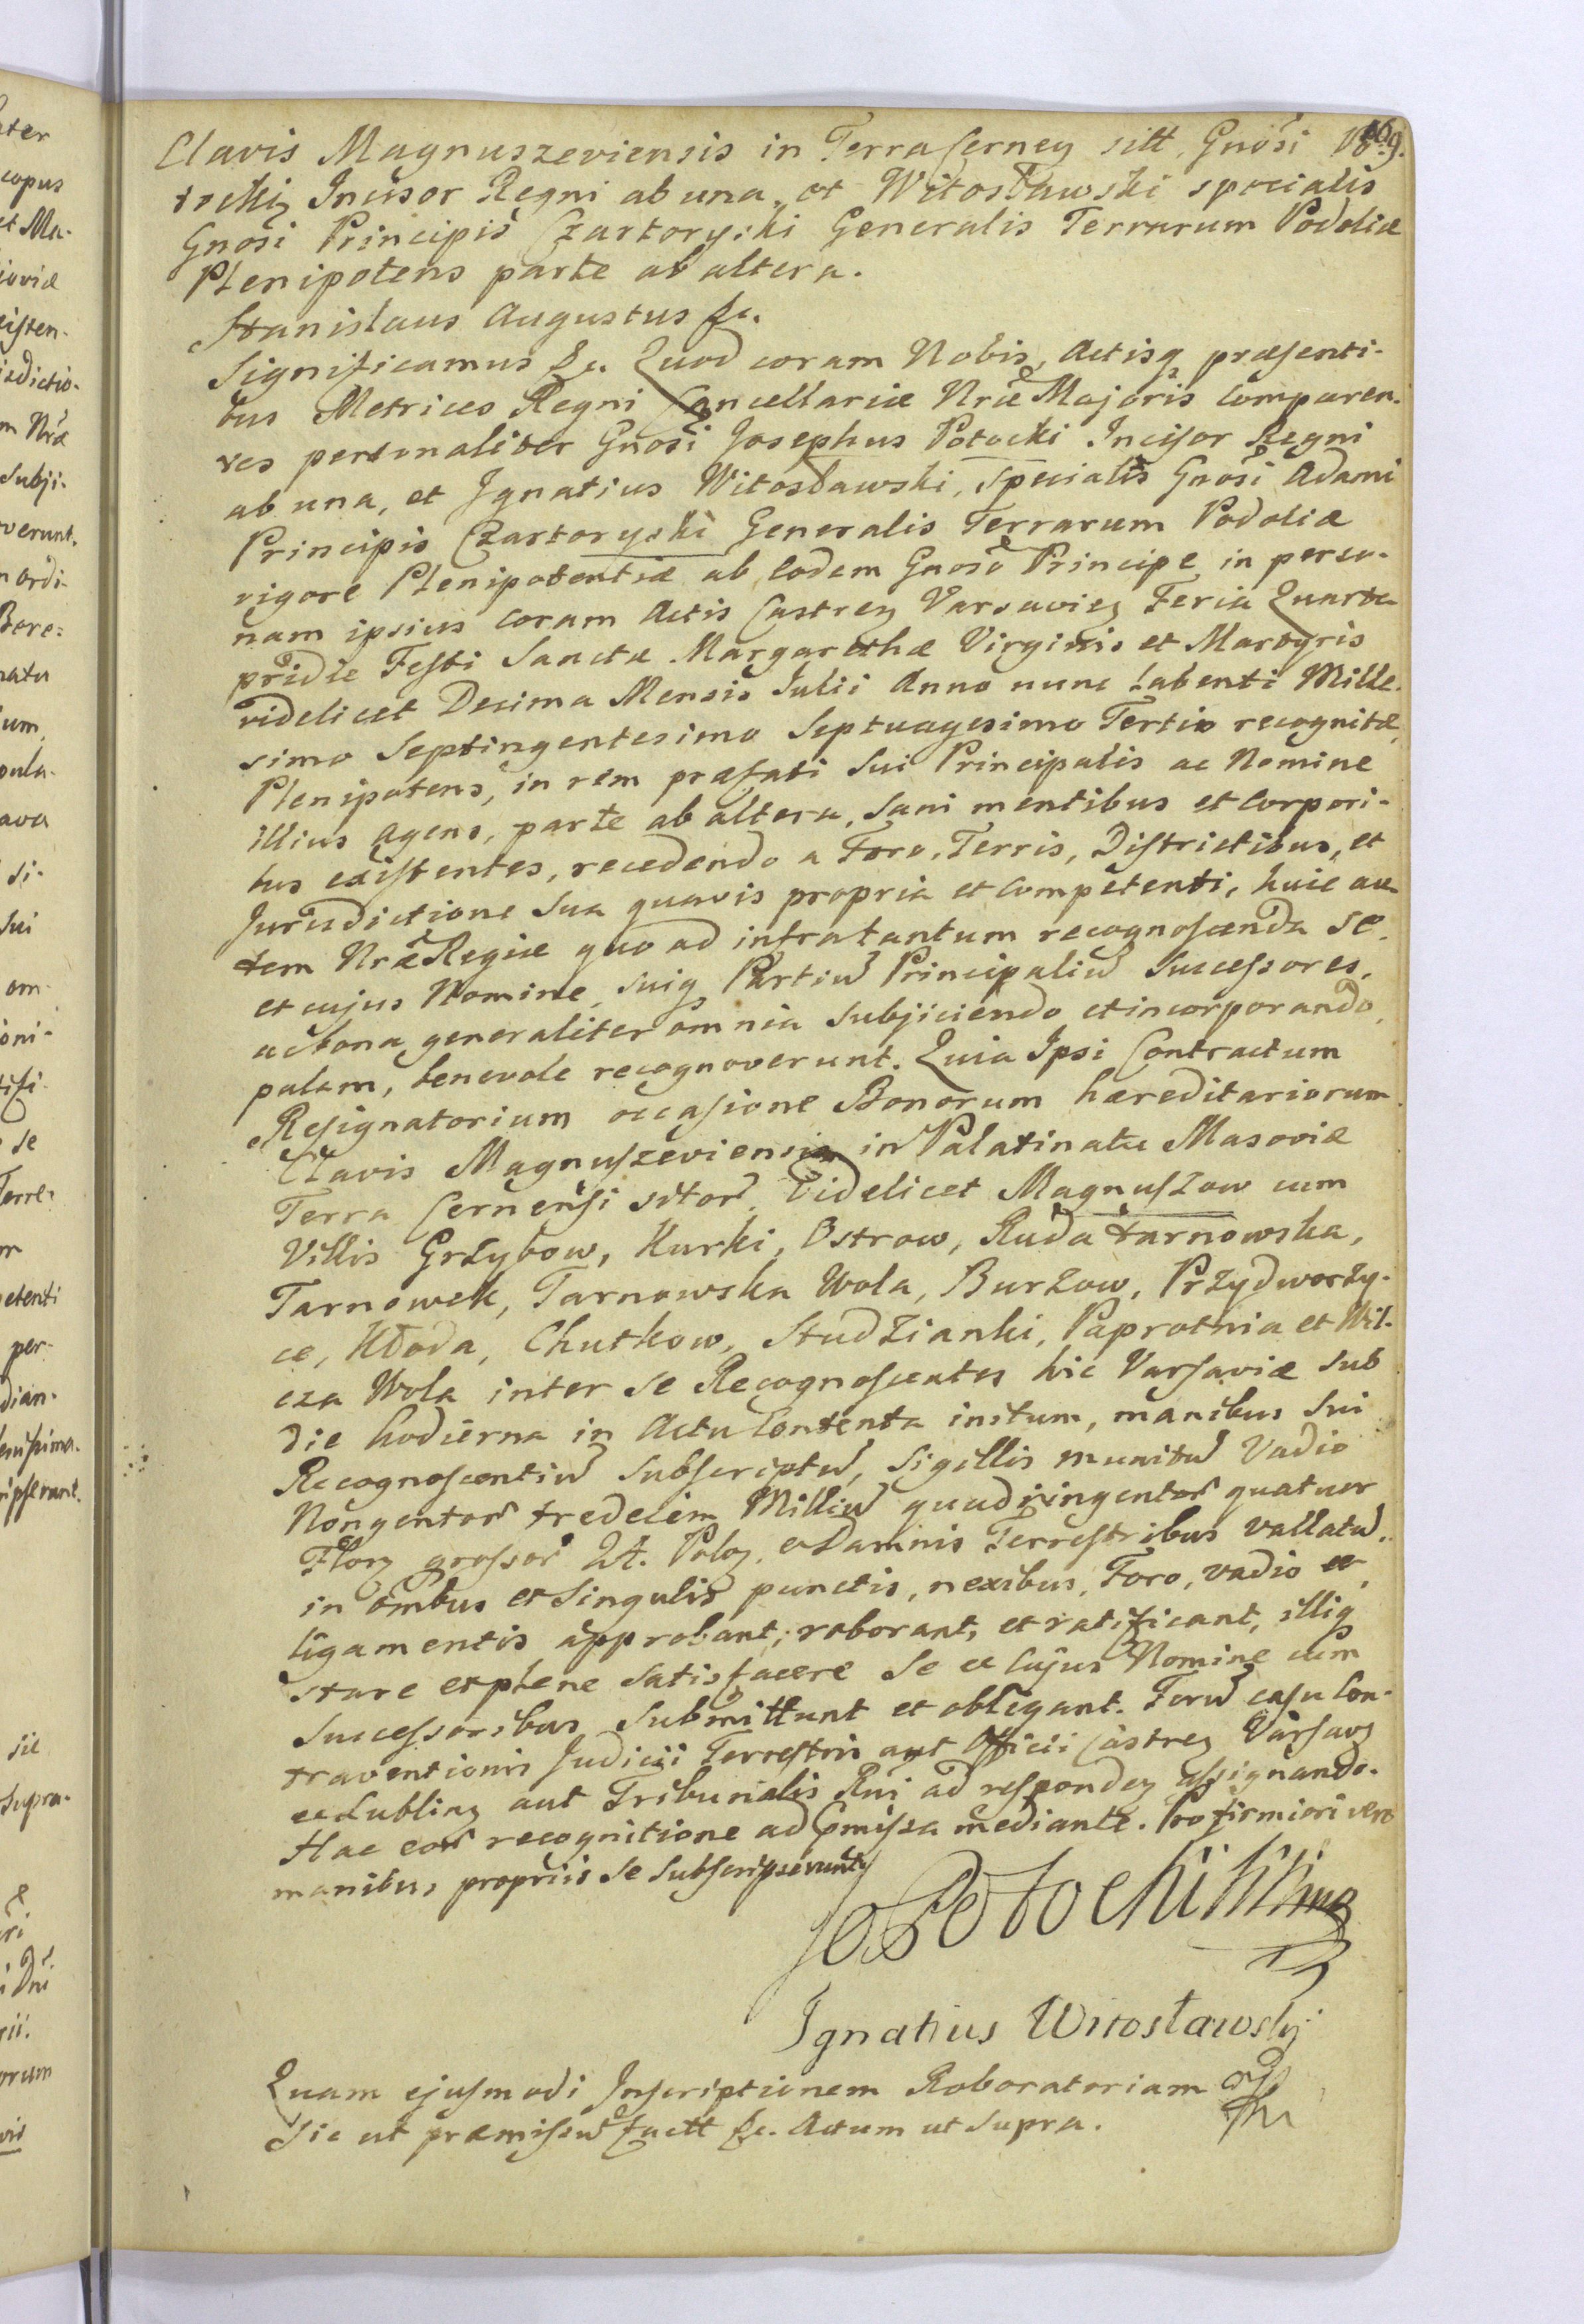 Clavis Magnuszeviensis in Terra Cerney sitt. Gnosi Po 169.
tocki Incisor Regni ab una, et Witosławski specialis
Gnosi Principis Czartoryski Generalis Terrarum Podoliæ
Plenipotens parte ab altera.
Stanislaus Augustus &c.
Significamus &c. Quod coram Nobis, Actisq præsenti-
bus Metrices Regni Cancellariæ Nræ Majoris Comparen-
tes personaliter Gnosi Josephus Potocki Incisor Regni
ab una, et Ignatius Witosławski, Specialis Gnosi Adami
Principis Czartoryski Generalis Terrarum Podoliæ
vigore Plenipotentiæ ab Eodem Gnoso Principe in perso-
nam ipsius Coram Actis Castren Varsavien Feria Quarta
pridie Festi Sanctæ Margarethæ Virginis et Martyris
videlicet Decima Mensis Julii Anno nunc labenti Mille-
simo Septingentesimo Septuagesimo Tertio recognitæ,
Plenipotens, in rem præfati Sui Principalis ac Nomine
illius agens, parte ab altera, Sani mentibus et Corpori-
bus existentes, recedendo a Foro, Terris, Districtibus, et
Jurisdictione Sua quavis propria et Competenti, huic au-
tem Nræ Regiæ quo ad infratantum recognoscenda Se,
et cujus Nomine, suiq Partiu Principaliu Successores,
ac bona generaliter omnia Subjiciendo et incorporando,
palam, benevole recognoverunt. Quia Ipsi Contractum
Resignatorium occasione Bonorum hæreditariorum
Clavis Magnuszeviensis in Palatinatu Masoviæ
Terra Cernensi sitor. Videlicet Magnuszow cum
Villis Grzybow, Kurki, Ostrow, Ruda tarnowska,
Tarnowek, Tarnowska Wola, Burzow, Przydworzy-
ce, Kłoda, Chutkow, Studzianki, Paprotnia et Wil-
cza Wola inter Se Recognoscentes hic Varsaviæ Sub
die hodierna in Actu Contenta initum, manibus Sui
Recognoscentiu Subscriptu, Sigillis munitu Vadio
Nongentor tredecim Milliu quadringentor quatuor
Flor grossor Zł. Polo, et Damnis Terrestribus vallatu,
in ombus et Singulis punctis, nexibus, Foro, vadio et
ligamentis approbant, roborant, et ratificant, illiq
stare et plene Satisfacere Se et Cujus Nomine cum
Successoribus Submittunt et obligant. Foru casu Con-
traventionis Judicii Terrestris aut Officii Castren Varsav
et Lublin aut Tribunalis Rni ad responden assignando.
Hac eor recognitione ad pmissa mediante. Pro firmiori vero
manibus propriis Se Subscripserunt
Ignatius Witosławski
Quam ejusmodi Inscriptionem Roboratoriam
Sic ut præmissu factt &c. Actum ut Supra.